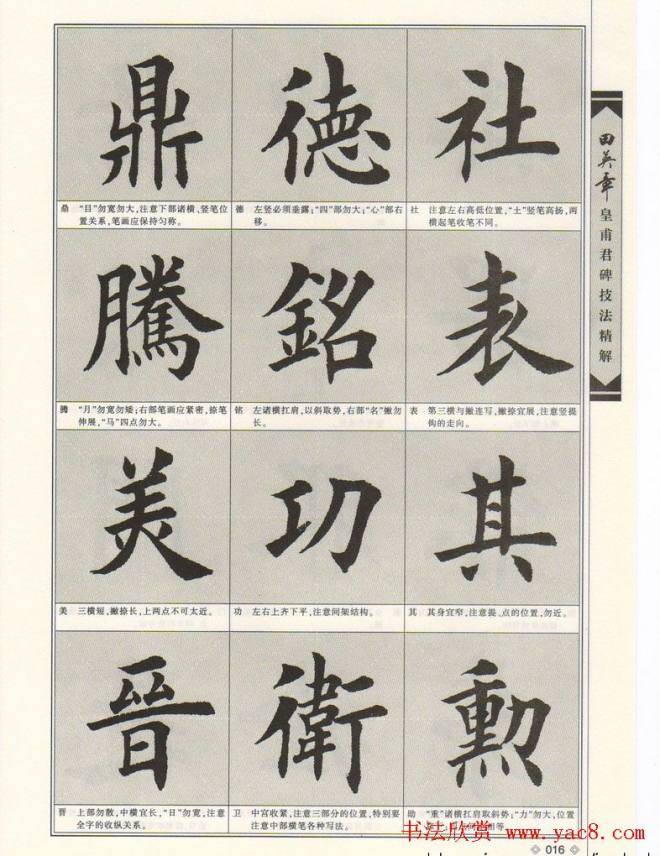 鼎 德 社
鼎 “目”勿宽勿大，注意下部诸横、竖笔位
置关系，笔画应保持匀称。
德 左竖必须垂露；“四”部勿大；“心”部右
移。
社 注意左右高低位置，“土”竖笔高扬，两
横起笔收笔不同。
騰 銘 表
腾 “月”勿宽勿矮；右部笔画应紧密，捺笔
伸展，“马”四点勿大。
铭 左诸横扛肩，以斜取勢，右部“名”撇勿
长。
表 第三横与撇连写，撇捺宜展，注意竖提
钩的走向。
美 功 其
美 三横短，撇捺长，上两点不可太近。
功 左右上齐下平，注意间架结构。
其 其身宜窄，注意提、点的位置，勿近。
晉 衛 勲
晋 上部勿散，中横宜长，“日”勿宽，注意
全字的收纵关系。
卫 中宫收紧，注意三部分的位置，特别要
注意中部横笔各种写法。
“重”诸横扛肩取斜勢；“力”勿大，位置
田英章
皇甫君碑技法精解
书法欣赏 www.yac8.com
016